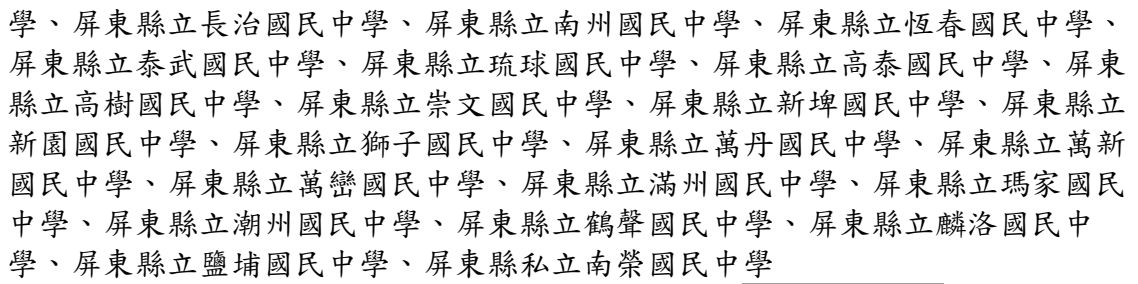 學、屏東縣立長治國民中學、屏東縣立南州國民中學、屏東縣立恆春國民中學、
屏東縣立泰武國民中學、屏東縣立琉球國民中學、屏東縣立高泰國民中學、屏東
縣立高樹國民中學、屏東縣立崇文國民中學、屏東縣立新埤國民中學、屏東縣立
新園國民中學、屏東縣立獅子國民中學、屏東縣立萬丹國民中學、屏東縣立萬新
國民中學、屏東縣立萬巒國民中學、屏東縣立滿州國民中學、屏東縣立瑪家國民
中學、屏東縣立潮州國民中學、屏東縣立鶴聲國民中學、屏東縣立麟洛國民中
學、屏東縣立鹽埔國民中學、屏東縣私立南榮國民中學